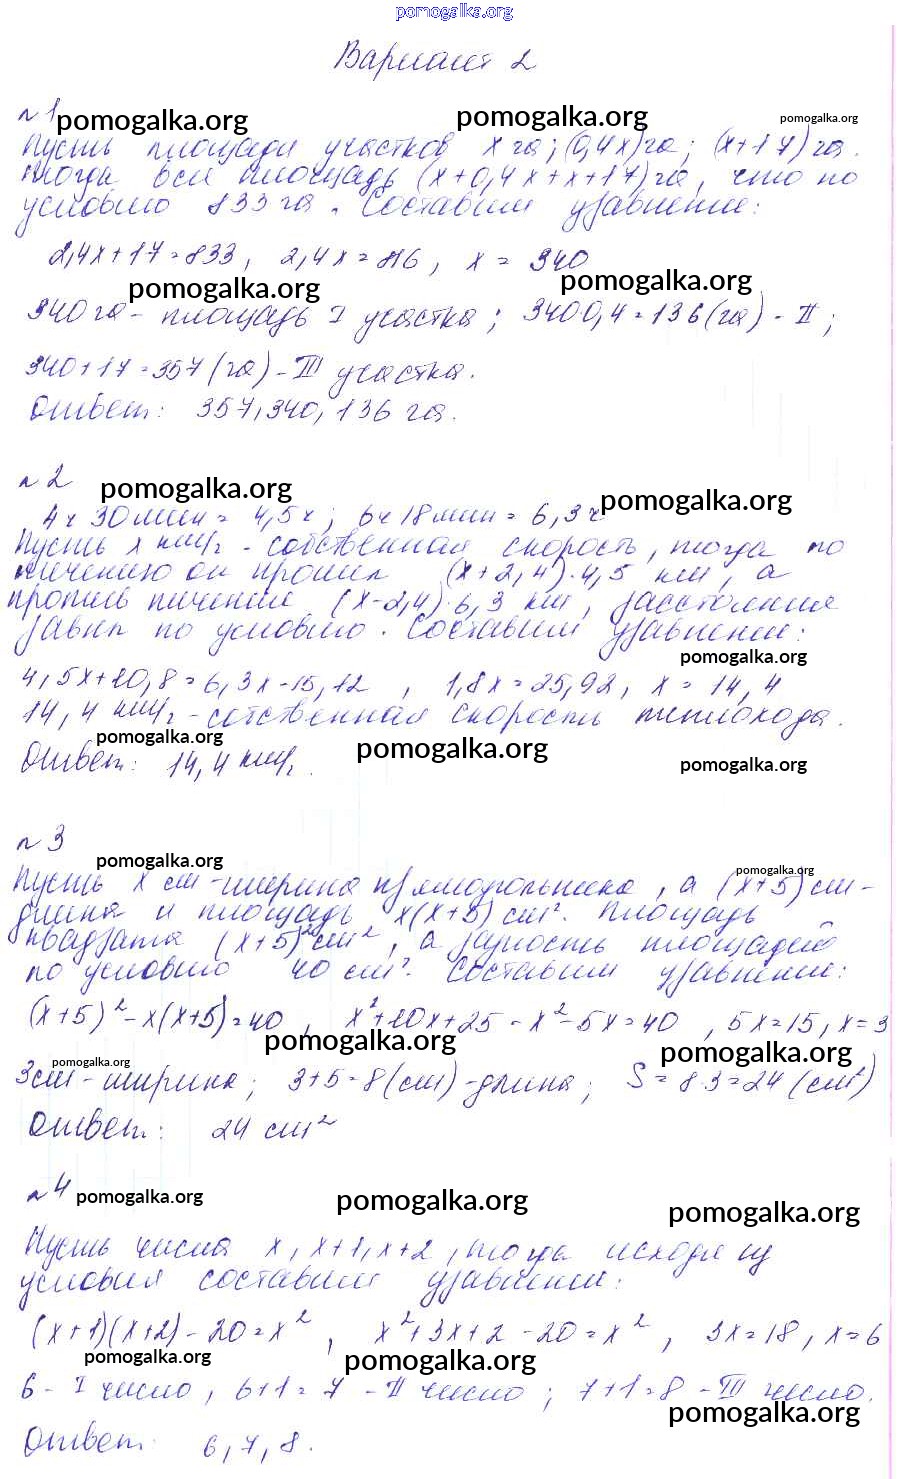 pomogalka.org
Вариант 2
№1
pomogalka.org pomogalka.org pomogalka.org
Пусть площади участков х га; (0,4х) га; (х+17) га.
Тогда вся площадь (х+0,4х+х+17) га, что по
условию 833 га. Составим уравнение:
2,4х+17=833, 2,4х=816, х = 340
pomogalka.org pomogalka.org
340 га - площадь I участка; 340·0,4=136(га) - II;
340+17=357(га) - III участка.
Ответ: 357,340,136 га.
№2
pomogalka.org pomogalka.org
4ч 30мин = 4,5ч; 6ч 18мин = 6,3ч
Пусть х км/ч - собственная скорость, тогда по
течению он прошел (х+2,4)·4,5 км, а
против течения (х-2,4)·6,3 км, расстояния
равны по условию. Составим уравнение:
pomogalka.org
4,5х+10,8=6,3х-15,12, 1,8х=25,92, х = 14,4
14,4 км/ч - собственная скорость теплохода.
pomogalka.org pomogalka.org pomogalka.org
Ответ: 14,4 км/ч.
№3
pomogalka.org pomogalka.org
Пусть х см - ширина прямоугольника, а (х+5) см -
длина и площадь х(х+5) см². Площадь
квадрата (х+5)² см², а разность площадей
по условию 40 см². Составим уравнение:
(х+5)²-х(х+5)=40, х²+10х+25-х²-5х=40, 5х=15, х=3
pomogalka.org pomogalka.org
pomogalka.org
3см - ширина; 3+5=8(см) - длина; S=8·3=24(см²)
Ответ: 24 см²
№4
pomogalka.org pomogalka.org pomogalka.org
Пусть числа х, х+1, х+2, тогда исходя из
условия составим уравнение:
(х+1)(х+2)-20=х², х²+3х+2-20=х², 3х=18, х=6
pomogalka.org pomogalka.org
6 - I число, 6+1=7 - II число; 7+1=8 - III число.
pomogalka.org
Ответ: 6,7,8.